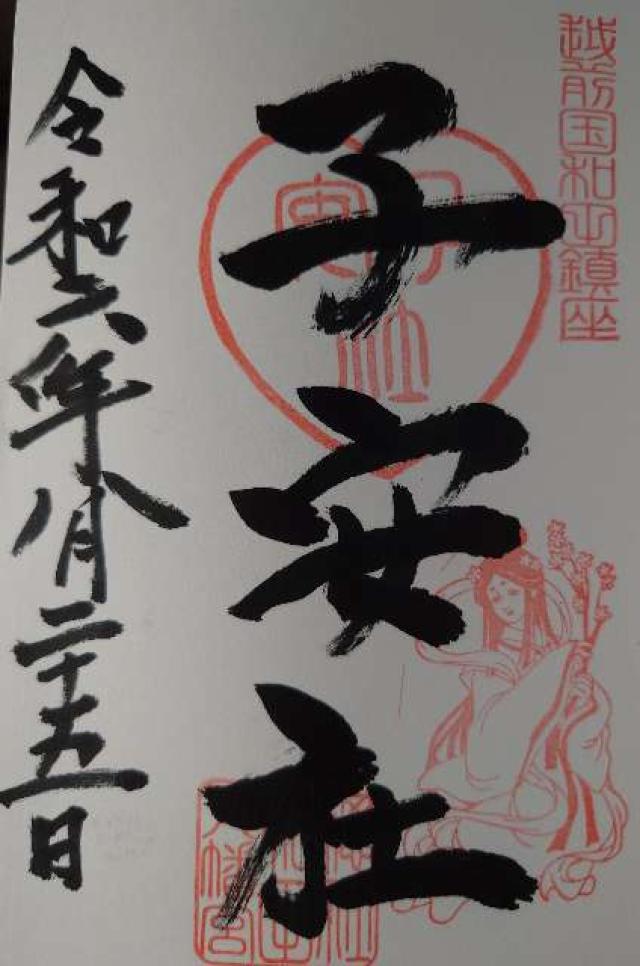 越前国和田鎮座
子安社
令和六年八月二十五日